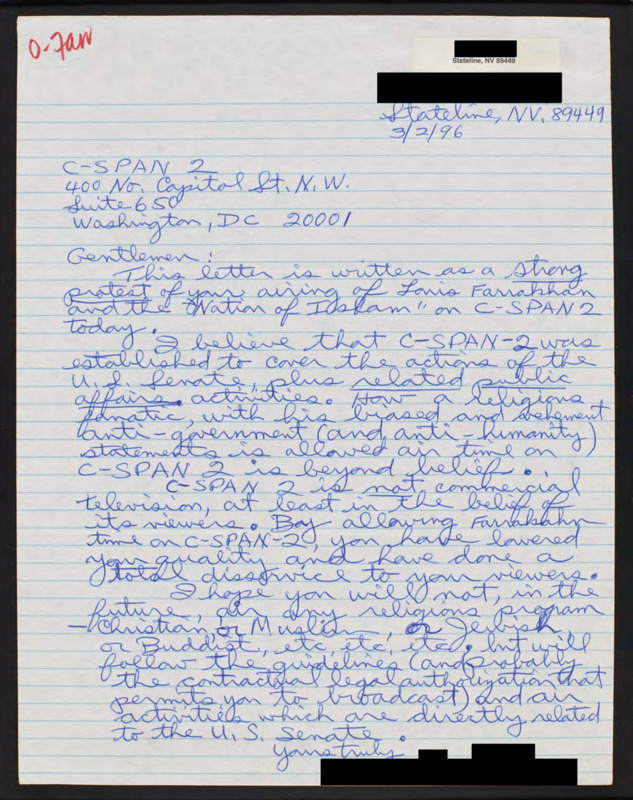 O-Fan
Stateline, NV 89449
Stateline, NV. 89449
3/2/96
C-SPAN 2
400 No. Capitol St. N.W.
Suite 650
Washington, DC 20001
Gentlemen:
This letter is written as a strong
protest of your airing of Louis Farrakhan
and the "Nation of Islam" on C-SPAN 2
today.
I believe that C-SPAN-2 was
established to cover the actions of the
U.S. Senate, plus related public
affairs activities. How a religious
fanatic, with his biased and vehement
anti-government (and anti-humanity)
statements is allowed air time on
C-SPAN 2 is beyond belief.
C-SPAN 2 is not commercial
television, at least in the belief of
its viewers. By allowing Farrakahn
time on C-SPAN-2, you have lowered
your quality and have done a
total disservice to your viewers.
I hope you will not, in the
future, air any religious program
- Christian, or Muslim, or Jewish
or Buddist, etc, etc, etc, but will
follow the guidelines (and probably
the contractual legal authorization that
permits you to broadcast) and air
activities which are directly related
to the U.S. Senate.
Yours truly